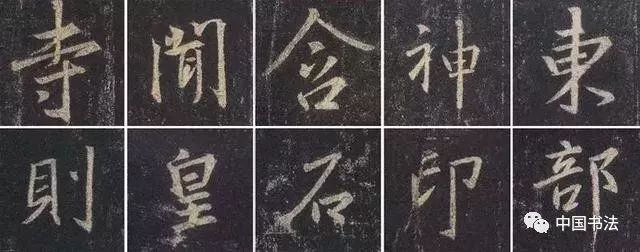 寺聞含神東
則皇石印部
中国书法